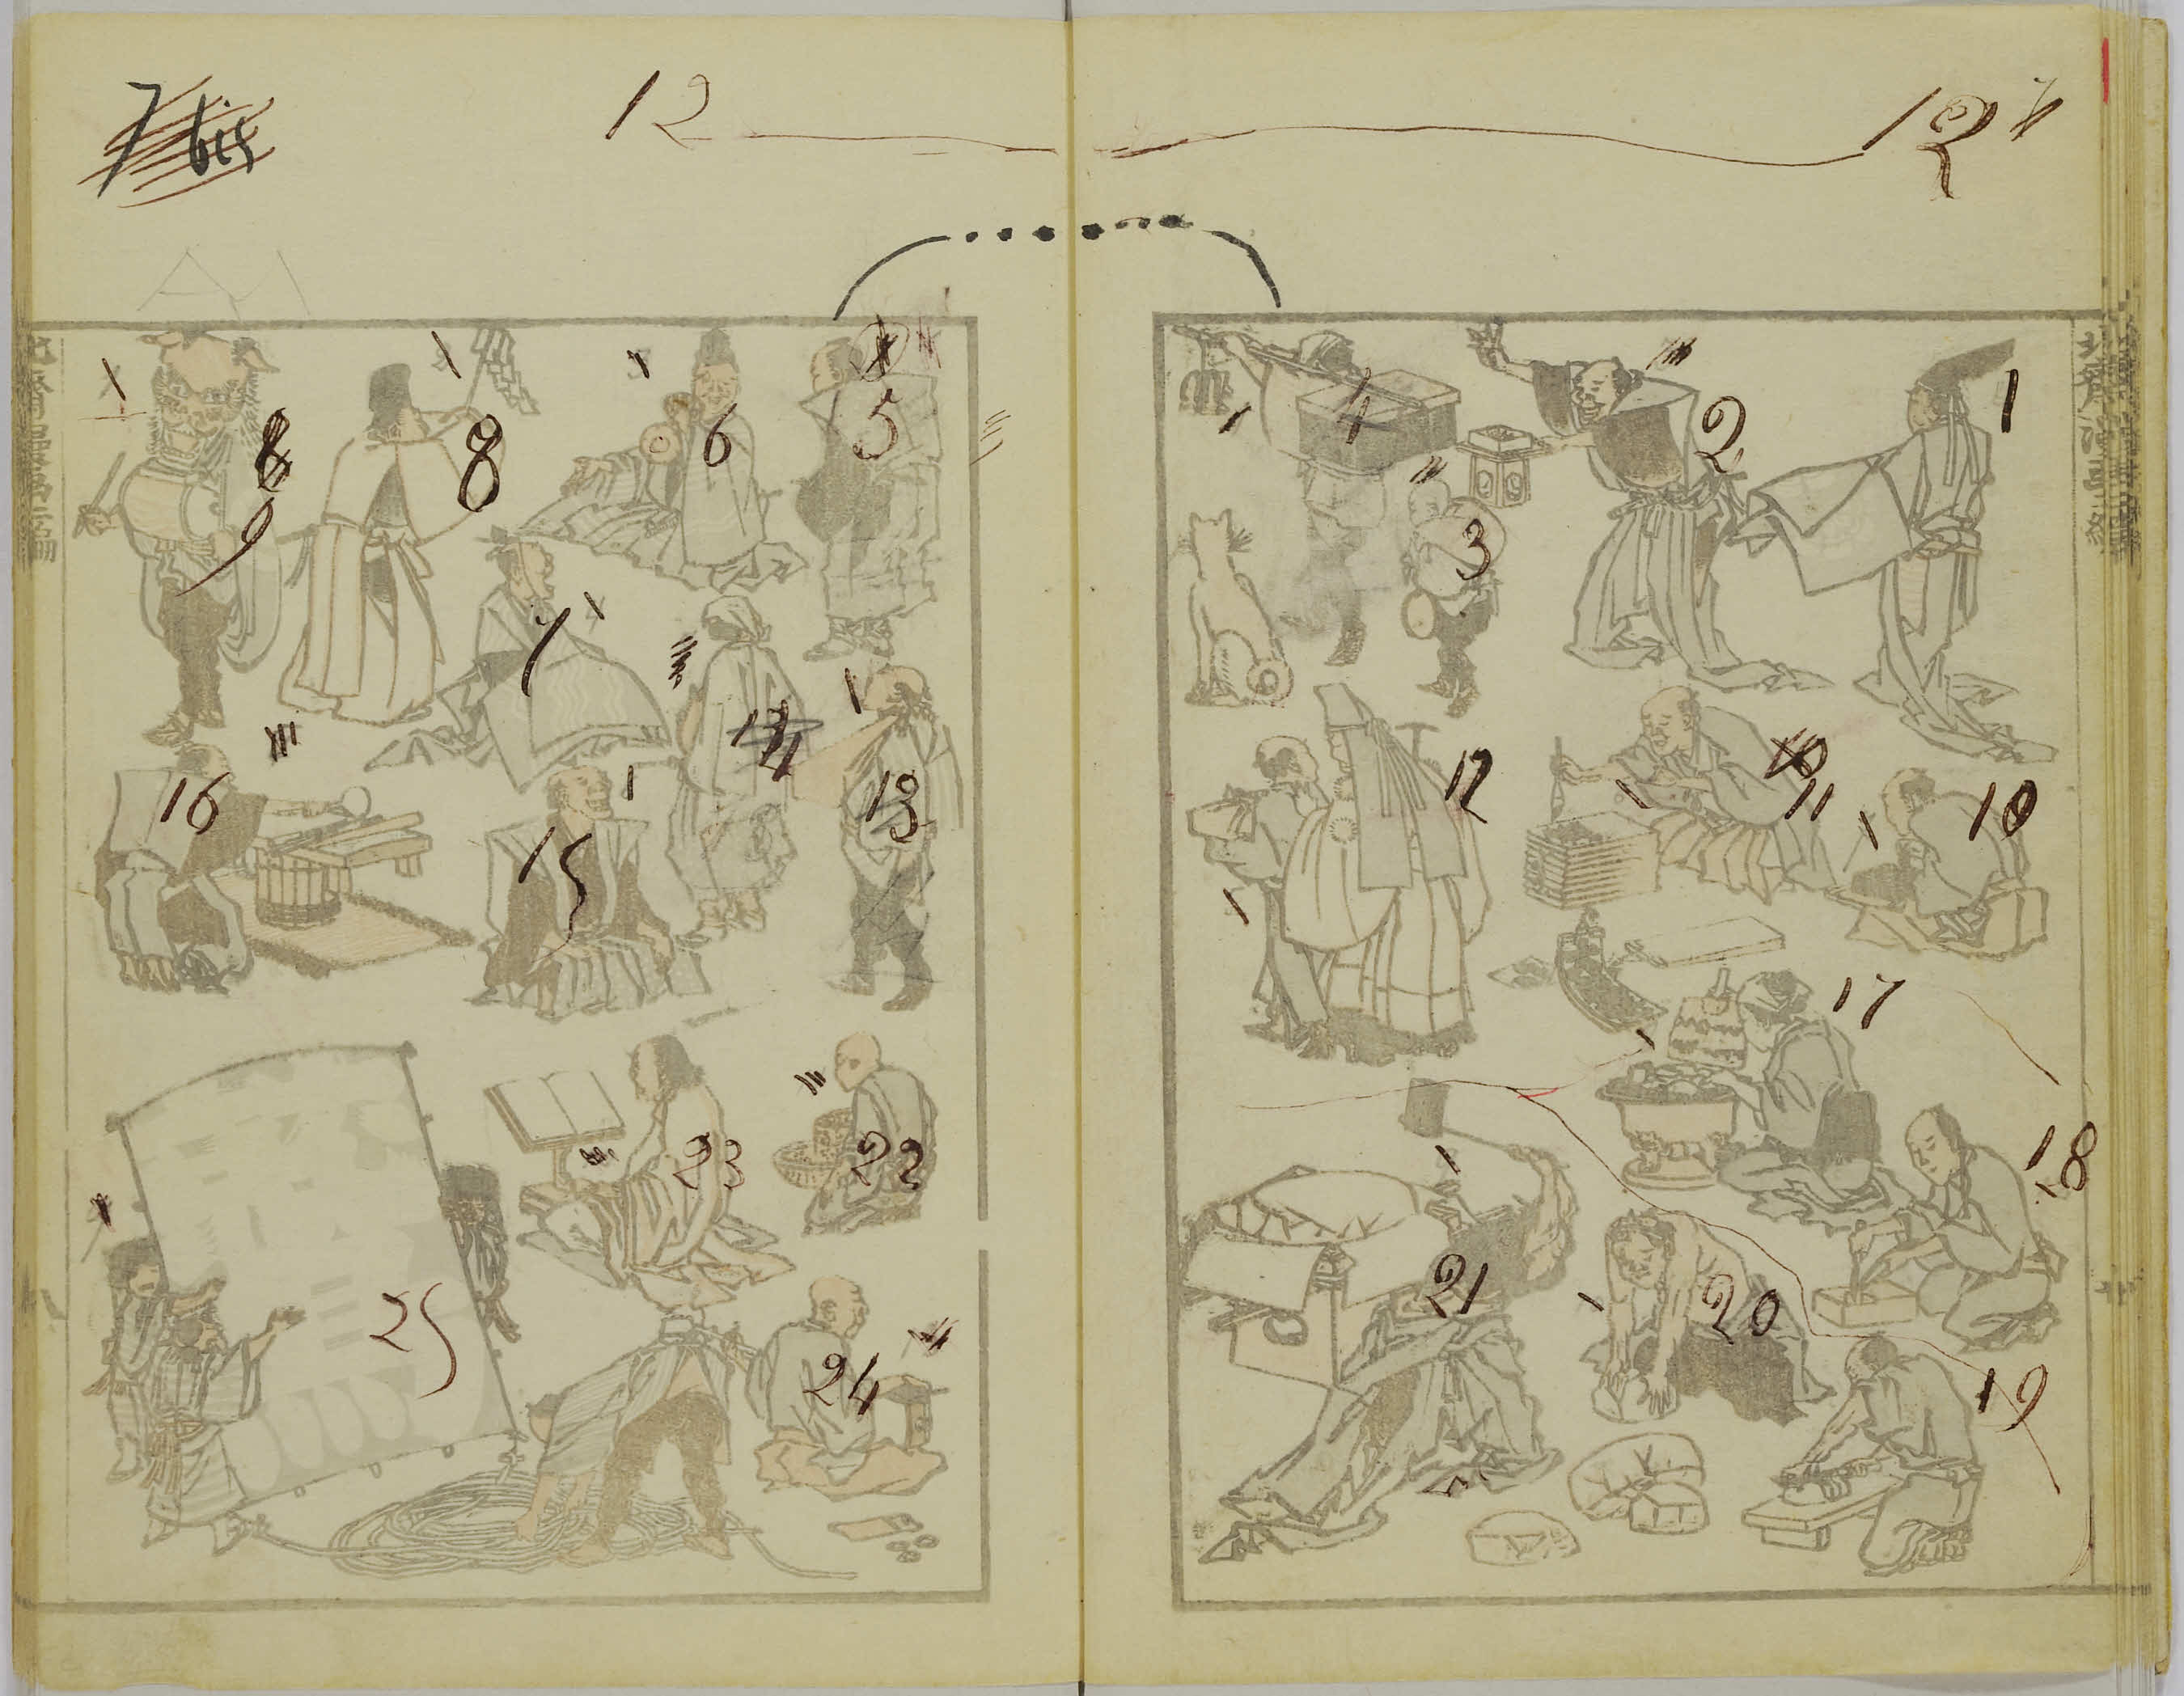 7 bis
12
12
1
2
3
4
5
6
7
8
8
9
10
11
12
13
14
15
16
17
18
19
20
21
22
23
24
25